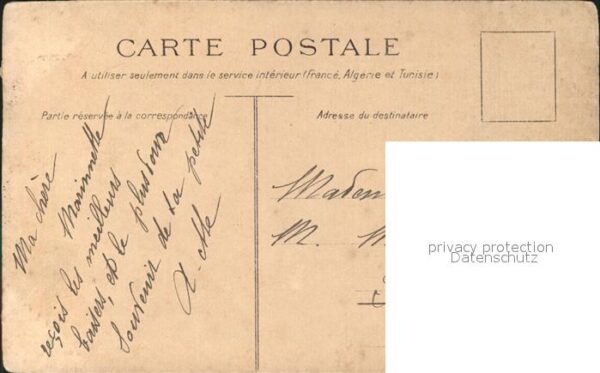 CARTE POSTALE
A utiliser seulement dans le service intérieur (France, Algérie et Tunisie)
Partie réservée à la correspondance
Adresse du destinataire
Ma chère
Marinnette
reçois les meilleurs
baisers, et le plus doux
souvenir de ta petite
Madem
M.
privacy protection
Datenschutz